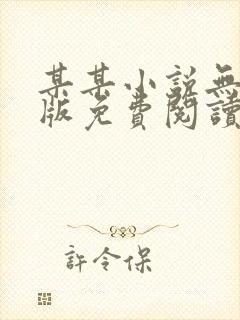 某某小説無
版免費閱讀
許令保